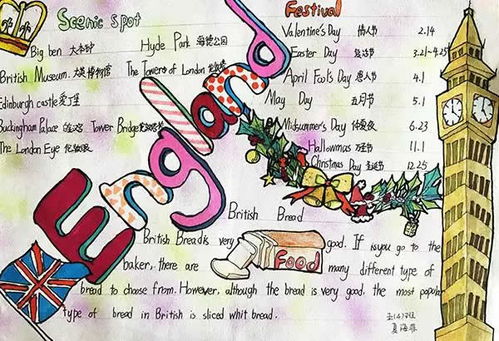 Scenic spot
Big ben 大本钟
Hyde Park 海德公园
British Museum. 大英博物馆
The Tower of London
Edinburgh castle 爱丁堡
Buckingham Place Tower Bridge
The London Eye 伦敦眼
England
Festival
Valentine's Day 情人节 2.14
Easter Day 复活节 3.21-4.25
April Fool's Day 愚人节 4.1
May Day 五月节 5.1
Midsummer's Day 仲夏夜 6.23
Hallowmas 万圣节 11.1
Christmas Day 圣诞节 12.25
British Bread
British Bread is very good. If is you go to the
Food
baker, there are many different type of
bread to choose from. However, although the bread is very good, the most popular
type of bread in British is sliced whit bread.